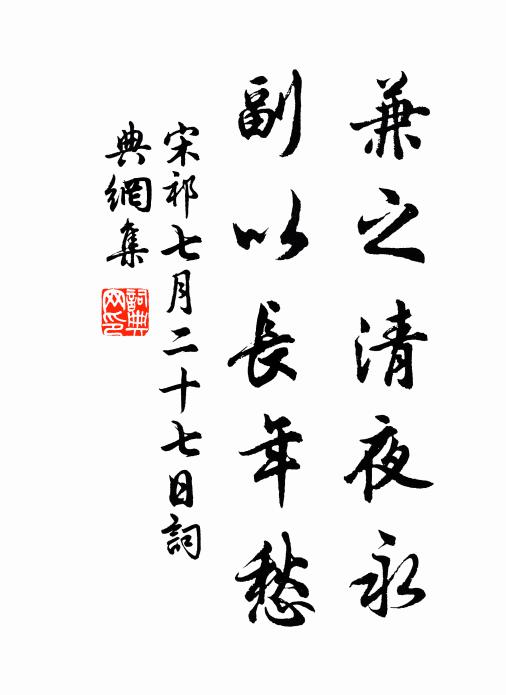 兼之清夜永
副以長年愁
宋祁七月二十七日詞
典網集
詞典網印